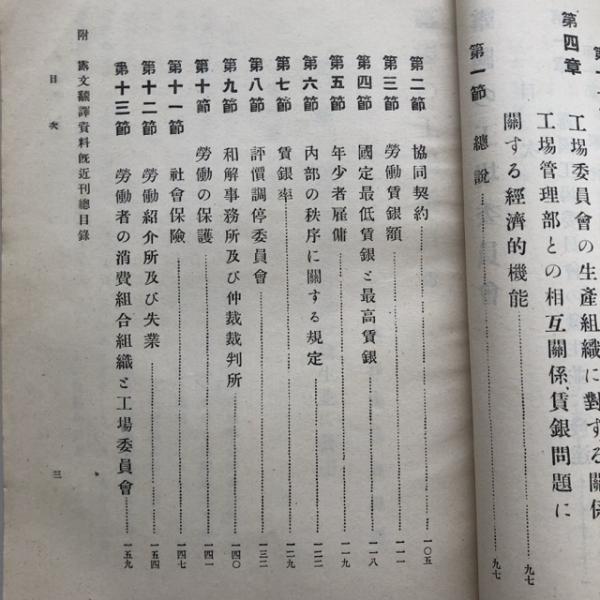 工場委員會の生產組織に對する關係
第四章
工場管理部との相互關係賃銀問題に
關する經濟的機能……九七
第一節 總說……九七
第二節 協同契約……一〇五
第三節 勞働賃銀額……一一一
第四節 國定最低賃銀と最高賃銀……一一八
第五節 年少者雇傭……一一九
第六節 內部の秩序に關する規定……一二二
第七節 賃銀率……一二九
第八節 評價調停委員會……一三二
第九節 和解事務所及び仲裁裁判所……一四〇
第十節 勞働の保護……一四一
第十一節 社會保險……一四七
第十二節 勞働紹介所及び失業……一五四
第十三節 勞働者の消費組合組織と工場委員會……一五九
附 露文飜譯資料旣近刊總目錄
目次
三